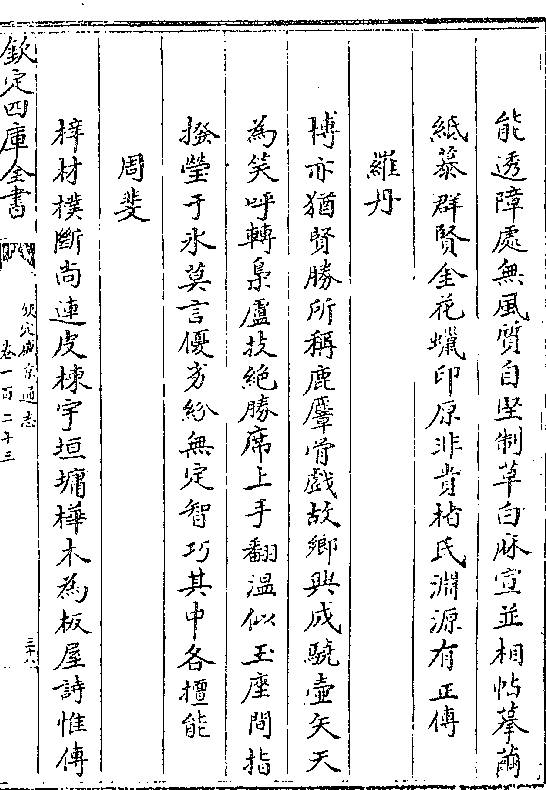 能透障處無風質自堅制草白麻宣並相帖摹繭
紙慕群賢金花蠟印原非貴楮氏淵源有正傳
羅丹
博亦猶賢勝所稱鹿麞骨戲故鄉興成驍壺矢天
為笑呼轉梟盧技絶勝席上手翻温似玉座間指
撥瑩于氷莫言優劣紛無定智巧其中各擅能
周斐
梓材樸斷尚連皮棟宇垣墉樺木為板屋詩惟傳
欽定四庫全書
欽定盛京通志
卷一百二十三